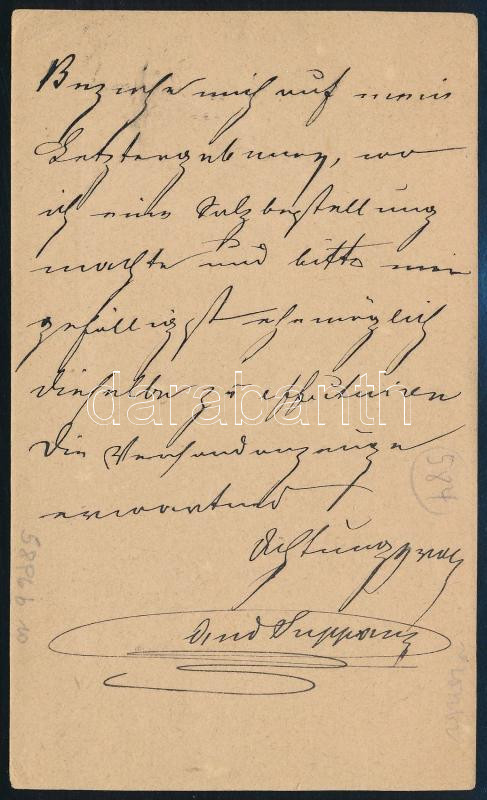 Beziehe mich auf mein
Letztergebenes, wo
ich eine Salzbestellung
machte und bitte mir
gefälligst ehemöglich
dieselbe zu effectuiren
die Versandanzeige
erwartend
Achtungsvoll
And Suppanz
darabanth
584